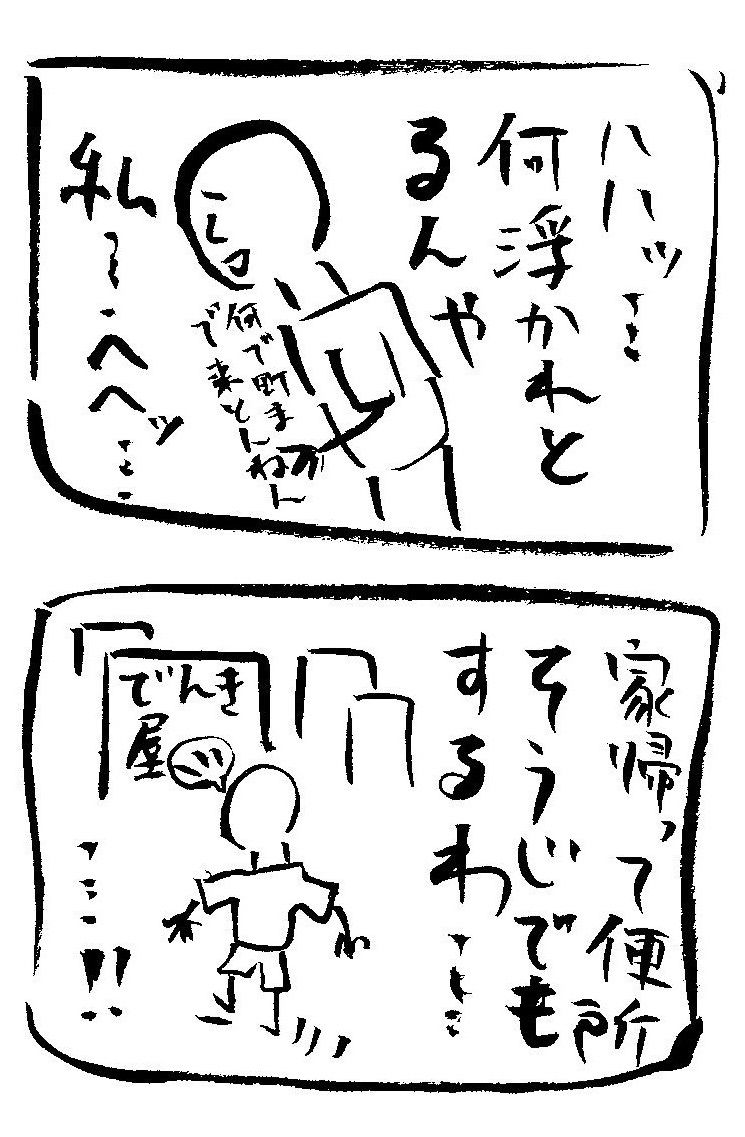 ハハッ…
何浮かれと
るんや
何で町ま
で来とんねん
私〜…ヘヘッ……
家帰って便所
そうじでも
するわ……
でんき
屋
……!!…